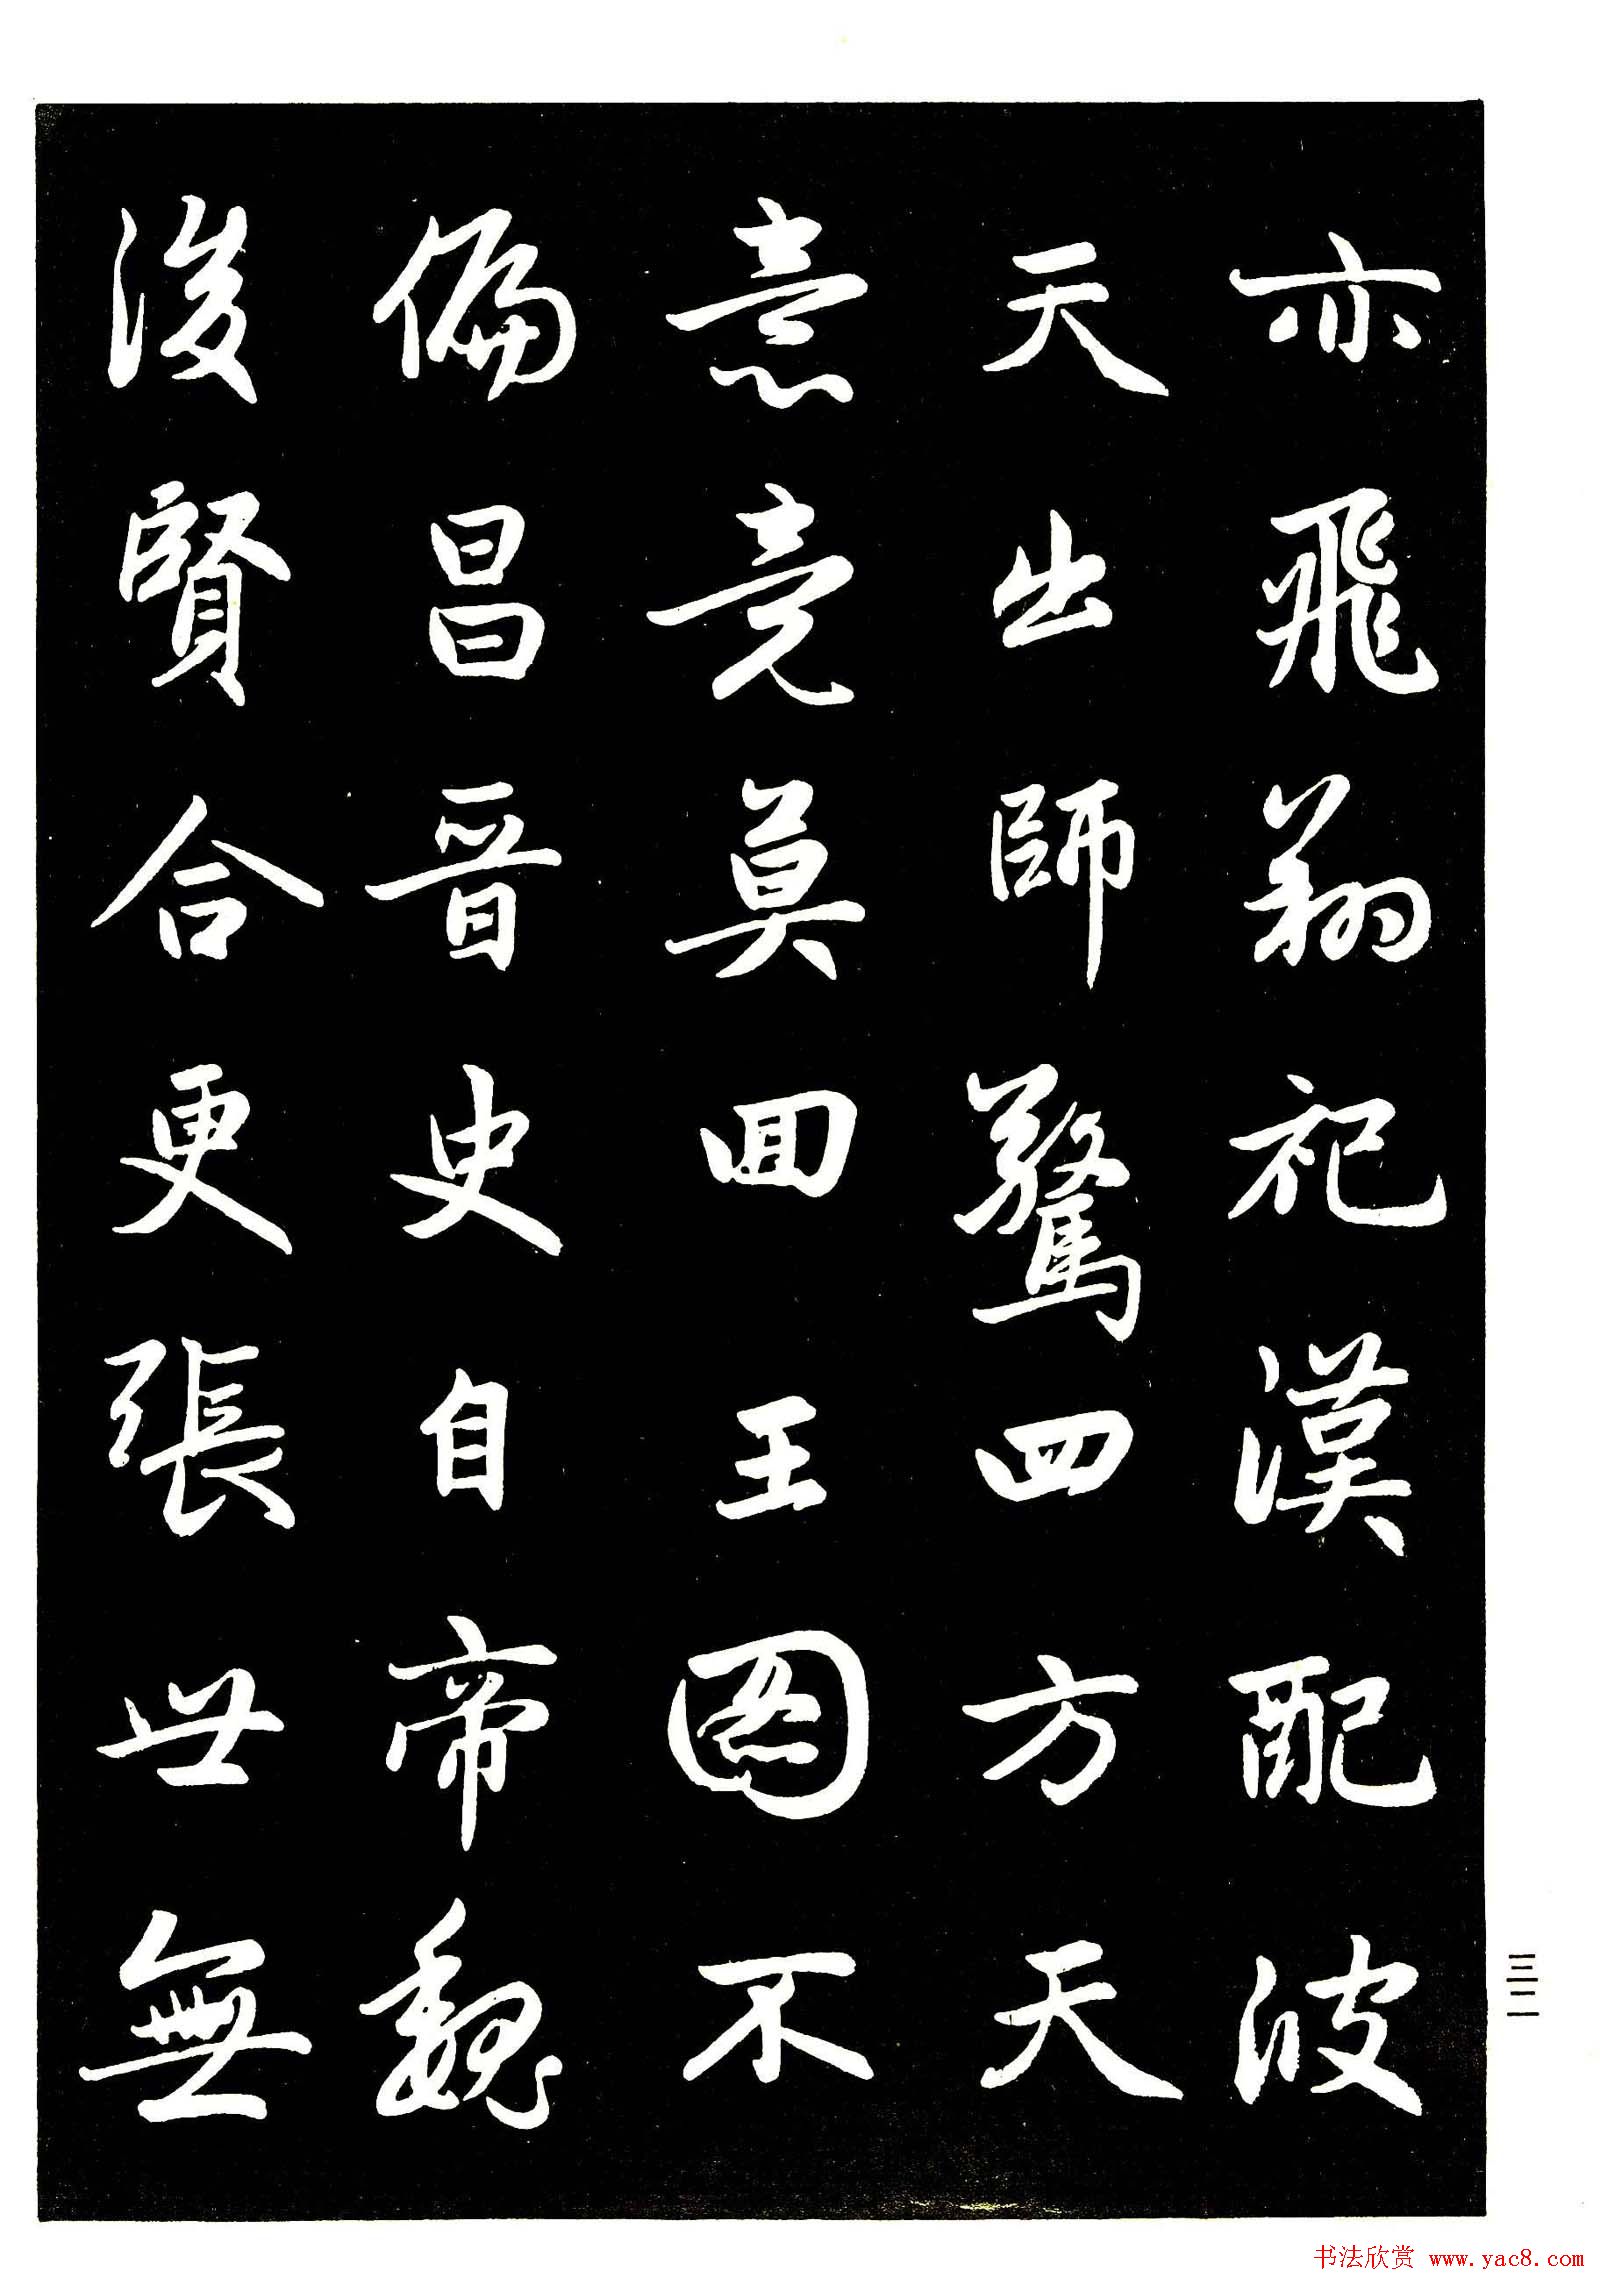 亦飛翔祀漢配彼
天出師驚四方天
意竟莫回王圖不
偏昌晉史自帝魏
後賢合更張世無
三二
书法欣赏 www.yac8.com